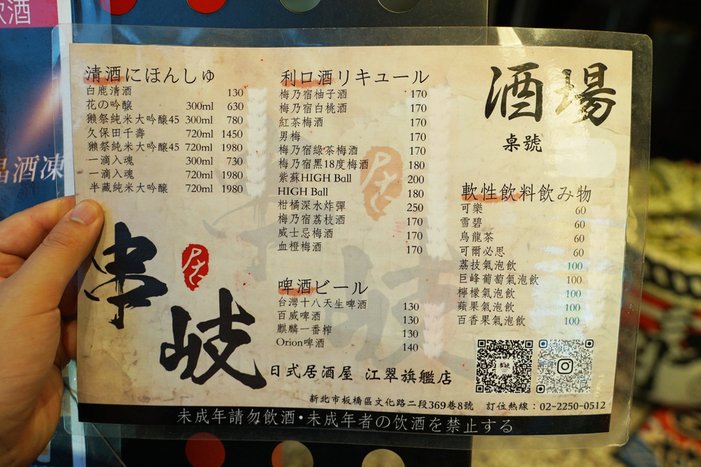 清酒にほんしゅ
白鹿清酒 130
花の吟醸 300ml 630
獺祭純米大吟醸45 300ml 780
久保田千壽 720ml 1450
獺祭純米大吟醸45 720ml 1980
一滴入魂 300ml 730
一滴入魂 720ml 1980
半藏純米大吟醸 720ml 1980
利口酒リキュール
梅乃宿柚子酒 170
梅乃宿白桃酒 170
紅茶梅酒 170
男梅 170
梅乃宿綠茶梅酒 170
梅乃宿黑18度梅酒 180
紫蘇HIGH Ball 200
HIGH Ball 180
柑橘深水炸彈 250
梅乃宿荔枝酒 170
威士忌梅酒 170
血橙梅酒 170
啤酒ビール
台灣十八天生啤酒 130
百威啤酒 130
麒麟一番榨 130
Orion啤酒 140
酒場
桌號
軟性飲料飲み物
可樂 60
雪碧 60
烏龍茶 60
可爾必思 60
荔枝氣泡飲 100
巨峰葡萄氣泡飲 100
檸檬氣泡飲 100
蘋果氣泡飲 100
百香果氣泡飲 100
串岐
日式居酒屋 江翠旗艦店
新北市板橋區文化路二段369巷8號 訂位熱線：02-2250-0512
未成年請勿飲酒・未成年者の饮酒を禁止する